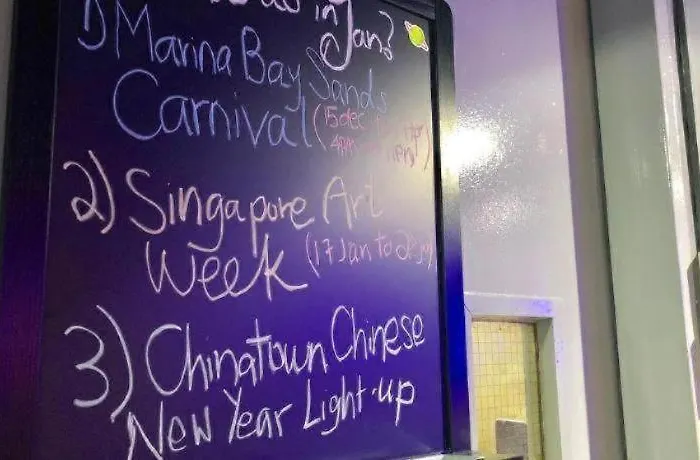 in Jan?
1) Marina Bay Sands
Carnival (15 dec
4pm
2) Singapore Art
Week (17 Jan to
3) Chinatown Chinese
New Year Light-up